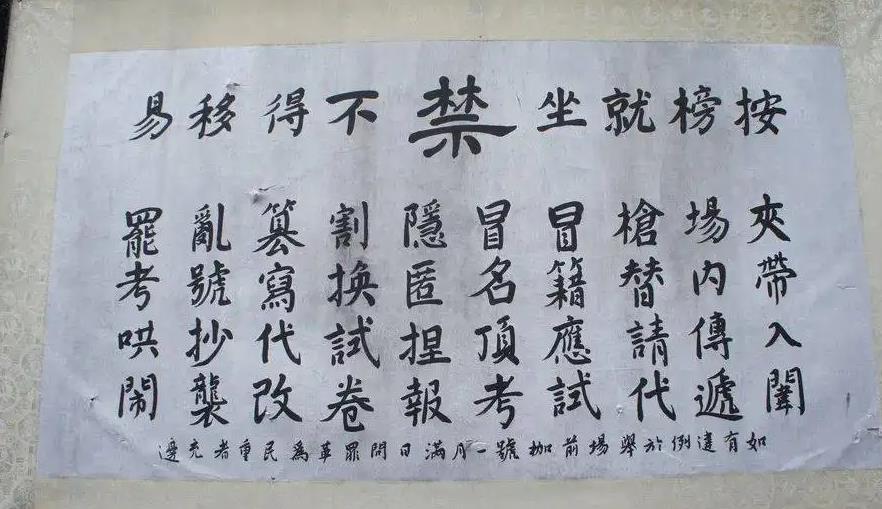 按榜就坐禁不得移易
夾帶入闈
場內傳遞
槍替請代
冒籍應試
冒名頂考
隱匿捏報
割換試卷
篡寫代改
亂號抄襲
罷考哄鬧
如有違例於舉場前枷號一月滿日問罪革爲民重者充邊